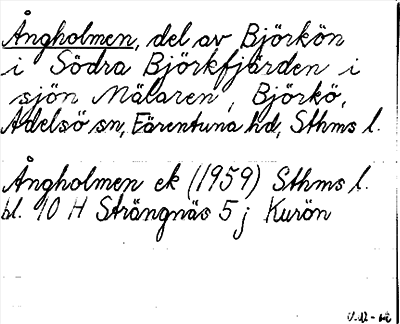 Ångholmen, del av Björkön
i Södra Björkfjärden i
sjön Mälaren, Björkö,
Adelsö sn, Färentuna hd, Sthms l.
Ångholmen ek (1959) Sthms l.
bl. 10 H Strängnäs 5 j Kurön